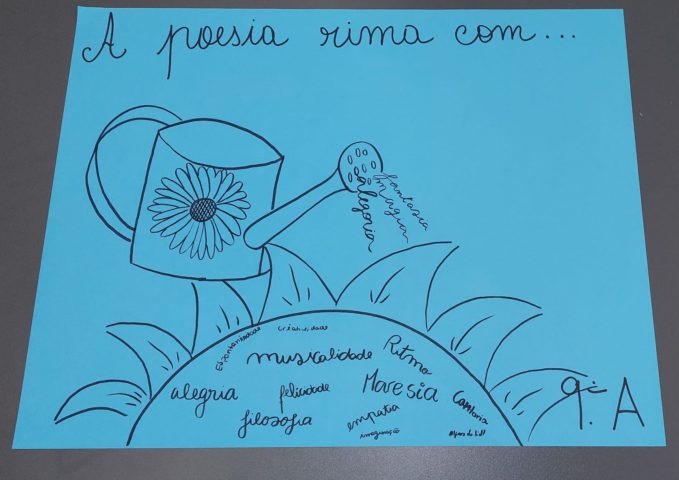 A poesia rima com...
fantasia
magia
alegria
Espontaneidade
criatividade
musicalidade
Ritmo
alegria
felicidade
Maresia
Cantoria
filosofia
empatia
imaginação
9º. A